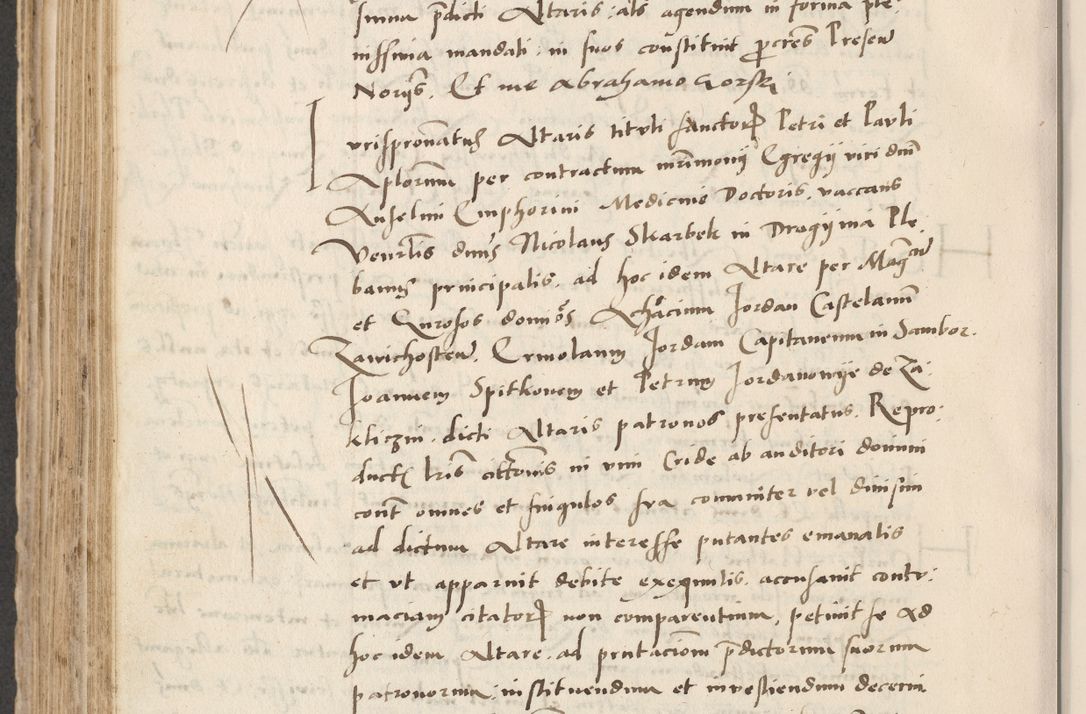 summa pdicti Altaris: als agendum in forma ple:
nissima mandati: in suos constituit pcres Presen
Norijs. Et me Abrahamo Gorski
Jurispronatus Altaris tituli sanctor Petri et Pauli
Aplorum per contractum mrimonij Egregij viri dni
Anselmi Emphorini Medicine Doctoris vaccans
Venrlis dnus Nicolaus Skarbek in Drogijnia Ple:
banus principalis, ad hoc idem Altare per Magcu
et Gnrosos dominos Achacium Jordan Castelanum
Zawichosten. Ermolaum Jordam Capitaneum in Sambor.
Joannem Spitkonem et Petrum Jordanowije de Za:
kliczin. dicti Altaris patronos presentatus. Repro:
ductis lris cittonis in vim Cride ab auditori domini
cont omnes et singulos sua comuniter vel divisim
ad dictum Altare interesse putantes emanatis
et vt apparuit debite exequutis, accusavit contu:
maciam citator non comparentium, petivit se ad
hoc idem Altare, ad pntacionem pdictorum suorum
patronorum, instituendum et investiendum decerni